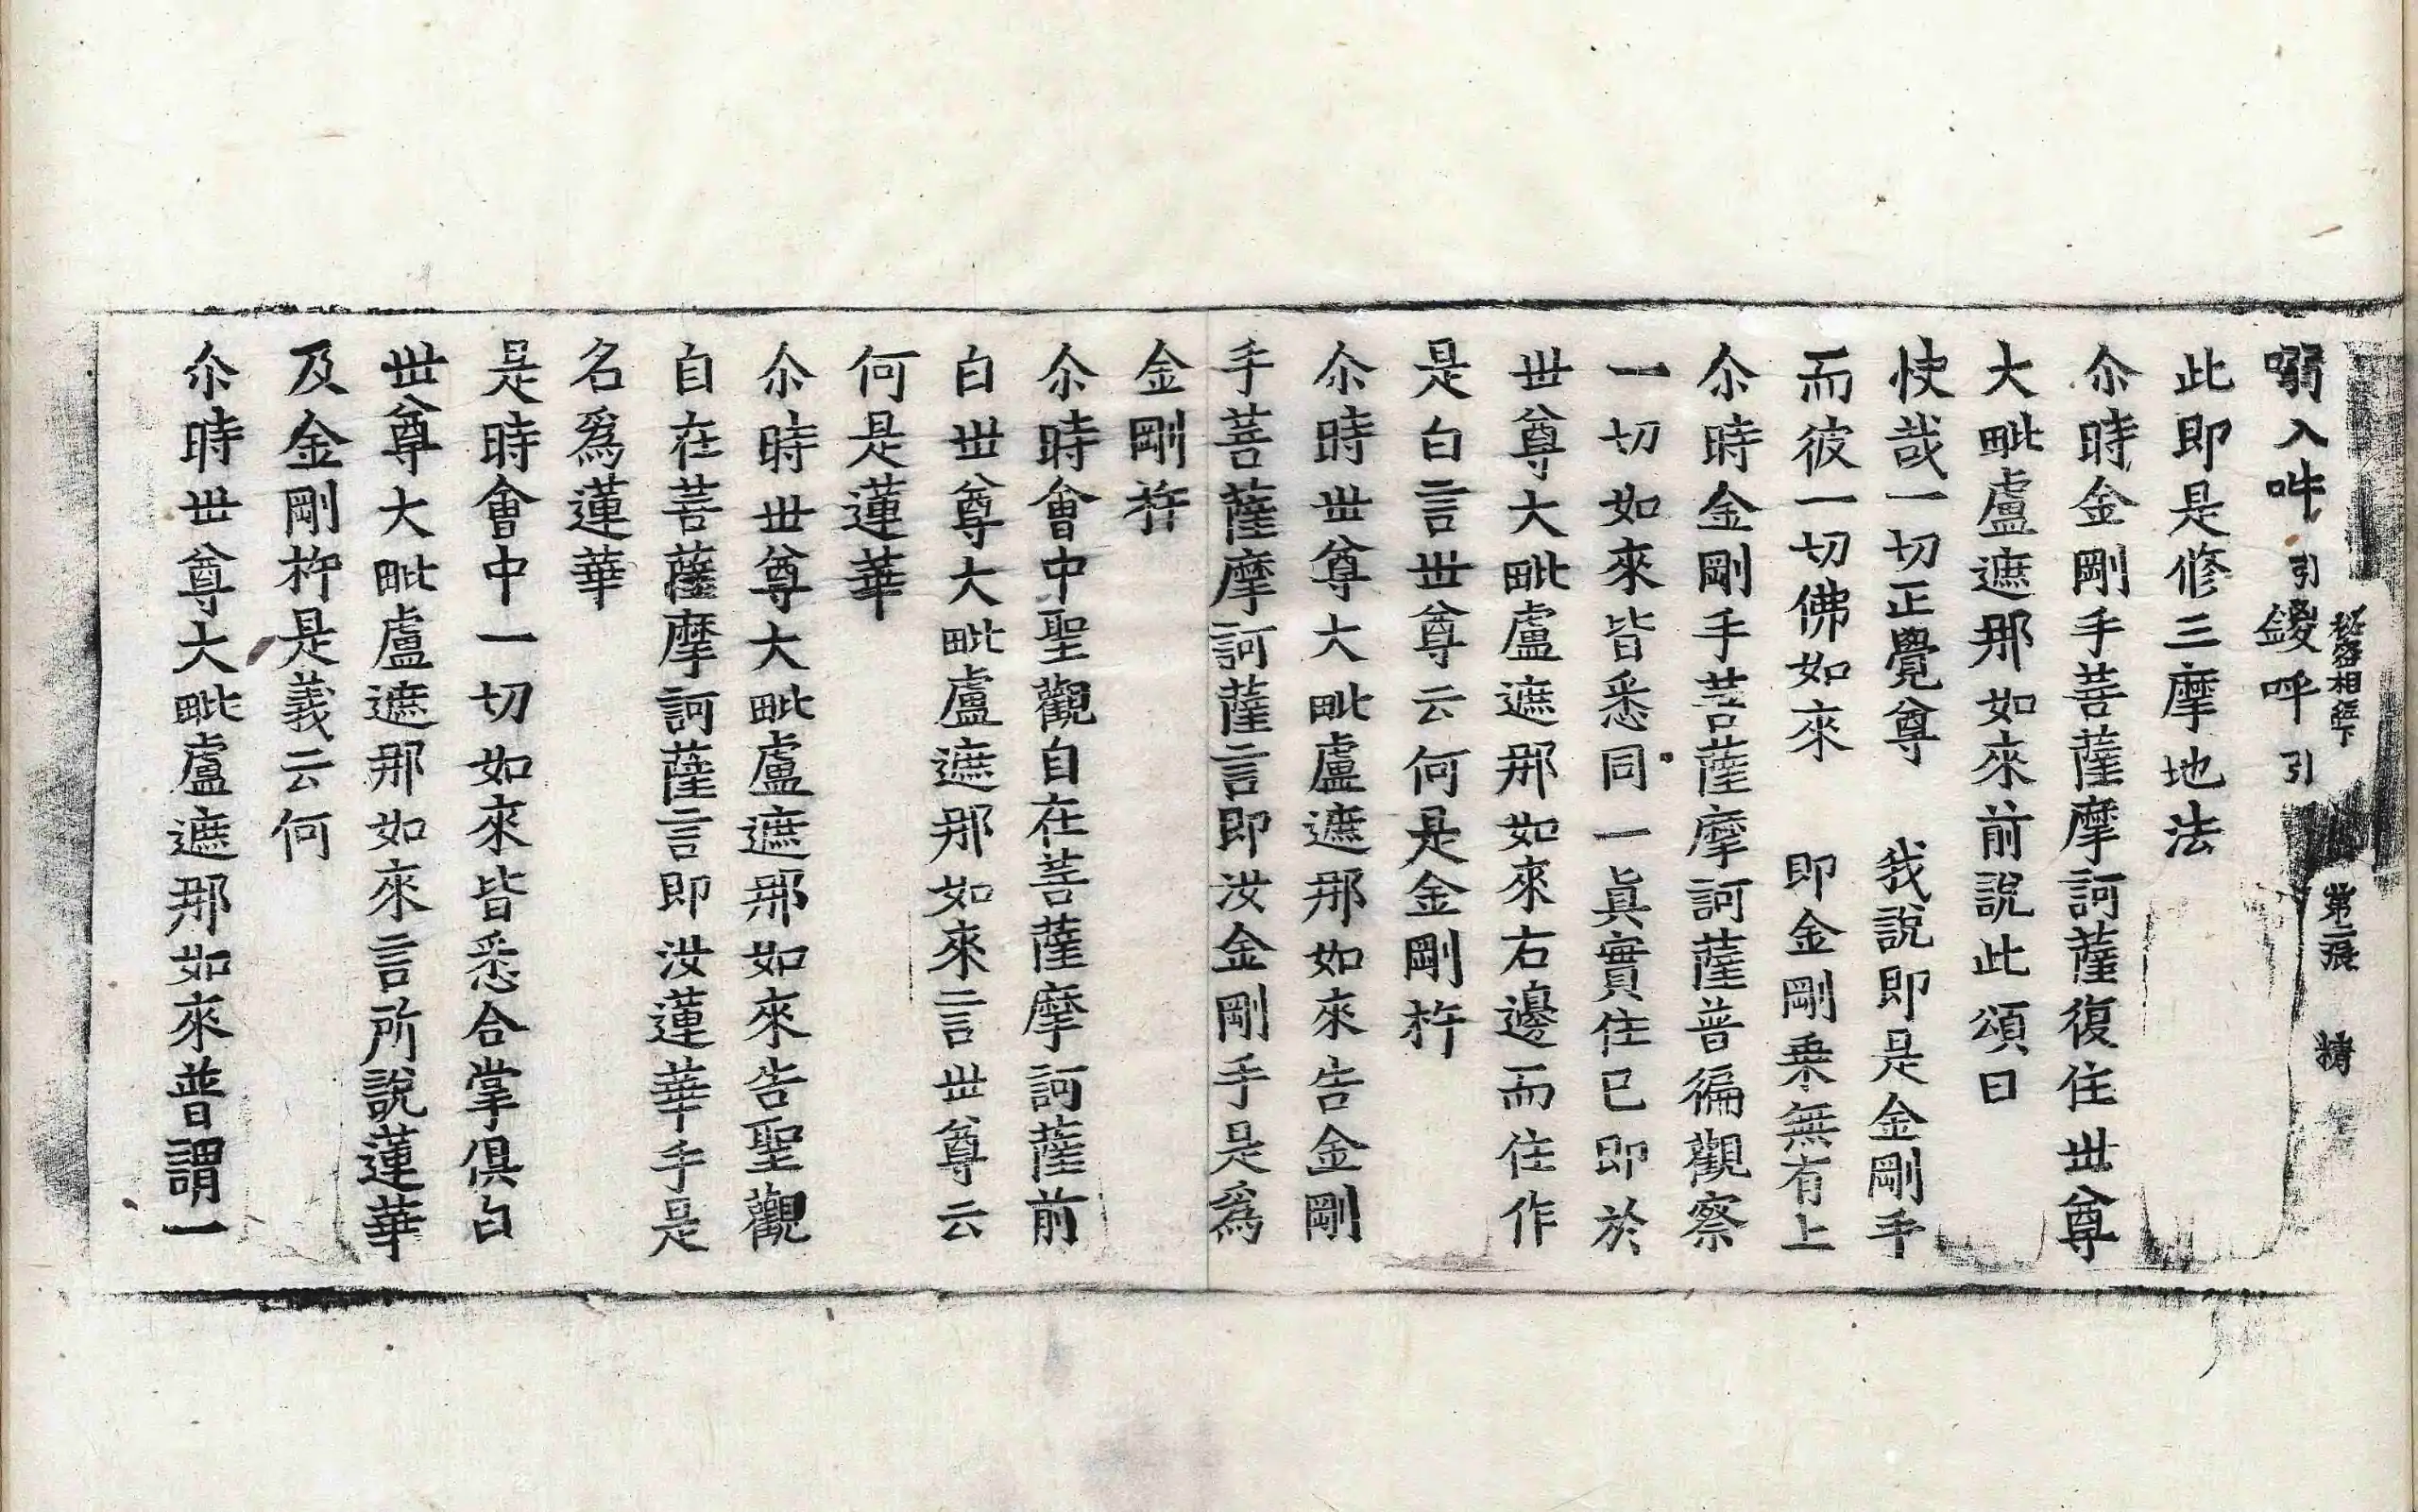 嗍入吽引鍐呼引
秘密相經下 第二張 精
此即是修三摩地法
尒時金剛手菩薩摩訶薩復住世尊
大毗盧遮那如來前說此頌曰
快哉一切正覺尊 我說即是金剛手
而彼一切佛如來 即金剛乗無有上
尒時金剛手菩薩摩訶薩普徧觀察
一切如來皆悉同一眞實住已即於
世尊大毗盧遮那如來右邊而住作
是白言世尊云何是金剛杵
尒時世尊大毗盧遮那如來告金剛
手菩薩摩訶薩言即汝金剛手是爲
金剛杵
尒時會中聖觀自在菩薩摩訶薩前
白世尊大毗盧遮那如來言世尊云
何是蓮華
尒時世尊大毗盧遮那如來告聖觀
自在菩薩摩訶薩言即汝蓮華手是
名爲蓮華
是時會中一切如來皆悉合掌俱白
世尊大毗盧遮那如來言所說蓮華
及金剛杵是義云何
尒時世尊大毗盧遮那如來普謂一